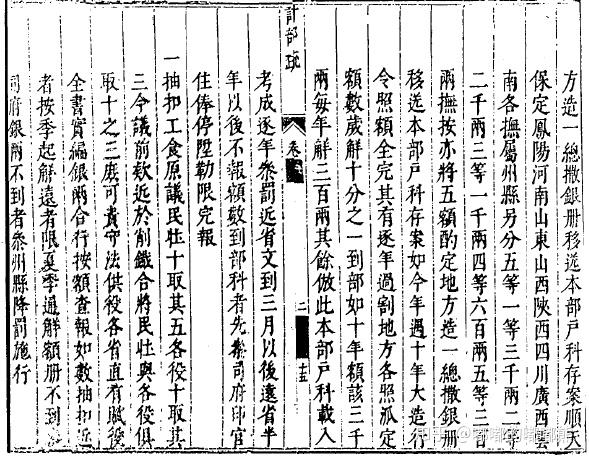 方造一總撒銀册移送本部戶科存案順天
保定鳳陽河南山東山西陝西四川廣西雲
南各撫屬州縣另分五等一等三千兩二等
二千兩三等一千兩四等六百兩五等三百
兩撫按亦將五額酌定地方造一總撒銀册
移送本部戶科存案如今年遇十年大造行
令照額全完其有逐年過割地方各照派定
額數歲解十分之一到部如十年額該三千
兩每年解三百兩其餘倣此本部戶科載入
計部疏
卷
二
考成逐年參罰近省文到三月以後遠省半
年以後不報額數到部科者先參司府印官
住俸停陞勒限完報
一抽扣工食原議民壯十取其五各役十取其
三今議前欵近於削鐵合將民壯與各役俱
取十之三庶可責守法供役各省直有賦役
全書實編銀兩合行按額查報如數抽扣近
者按季起解遠者限夏季通解額册不到
司府銀兩不到者參州縣降罰施行
知乎